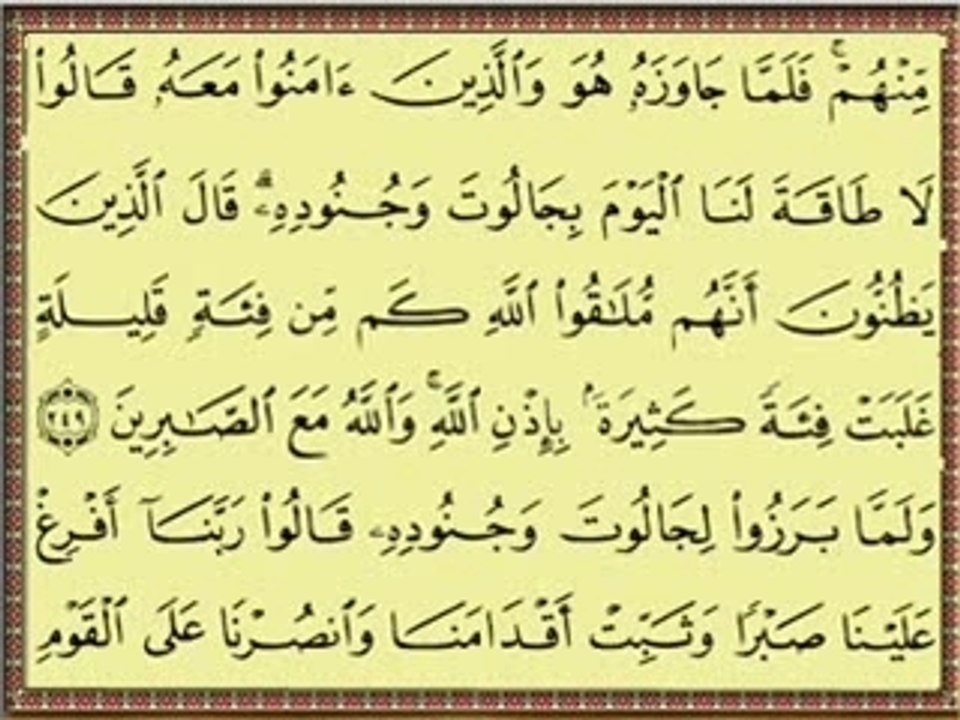 مِّنْهُمْ ۚ فَلَمَّا جَاوَزَهُۥ هُوَ وَٱلَّذِينَ ءَامَنُوا۟ مَعَهُۥ قَالُوا۟
لَا طَاقَةَ لَنَا ٱلْيَوْمَ بِجَالُوتَ وَجُنُودِهِۦ ۚ قَالَ ٱلَّذِينَ
يَظُنُّونَ أَنَّهُم مُّلَـٰقُوا۟ ٱللَّهِ كَم مِّن فِئَةٍ قَلِيلَةٍ
غَلَبَتْ فِئَةً كَثِيرَةًۢ بِإِذْنِ ٱللَّهِ ۗ وَٱللَّهُ مَعَ ٱلصَّـٰبِرِينَ ٢٤٩
وَلَمَّا بَرَزُوا۟ لِجَالُوتَ وَجُنُودِهِۦ قَالُوا۟ رَبَّنَآ أَفْرِغْ
عَلَيْنَا صَبْرًا وَثَبِّتْ أَقْدَامَنَا وَٱنصُرْنَا عَلَى ٱلْقَوْمِ